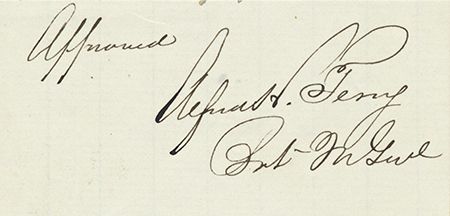 Approved
Alfred H. Terry
Bvt M Genl